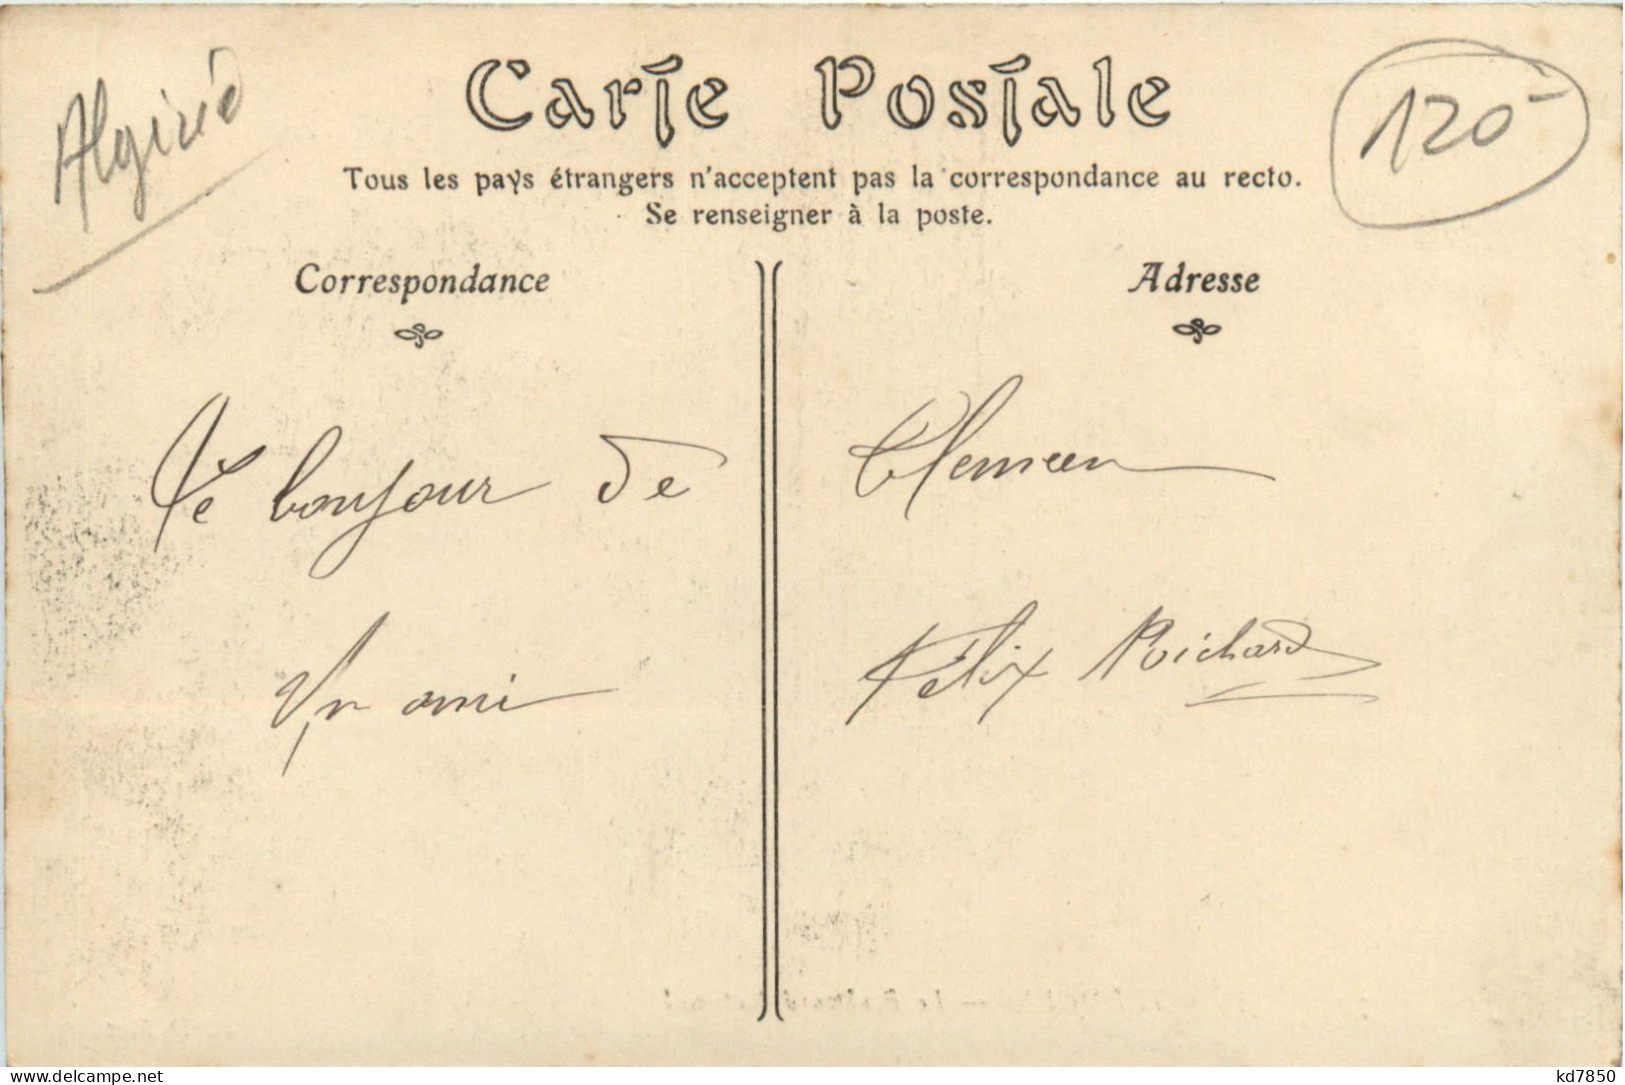 Algérie
Carte Postale
120-
Tous les pays étrangers n'acceptent pas la correspondance au recto.
Se renseigner à la poste.
Correspondance
Adresse
Le bonjour de
Un ami
Tlemcen
Félix
www.delcampe.net
kd7850